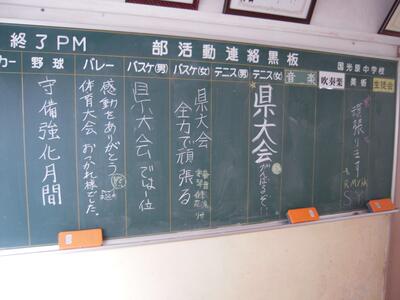 終了PM
部活動連絡黒板
国光原中学校
カー
野球
バレー
バスケ(男)
バスケ(女)
テニス(男)
テニス(女)
音楽
吹奏楽
美術
生徒会
頑張ります
県大会
がんばろうぜ!!
県大会
全力で頑張る
県大会では位
感動をありがとう
体育大会 おつかれ様でした。
守備強化月間